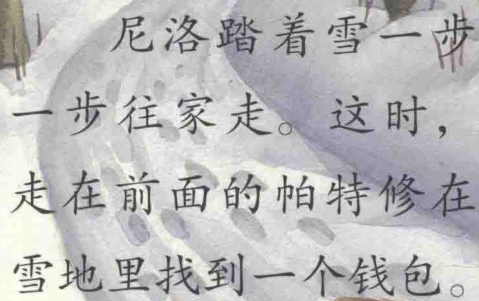 尼洛踏着雪一步
一步往家走。这时，
走在前面的帕特修在
雪地里找到一个钱包。